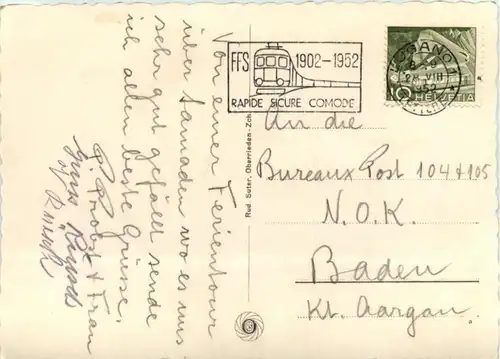 Von einer Ferientour
über Samaden wo es uns
sehr gut gefällt sende
ich allen beste Grüsse.
P. Probst + Frau
Gruss
FFS 1902-1952
RAPIDE SICURE COMODE
LUGANO 1
28 VIII
1952
10 HELVETIA
Rud Suter, Oberrieden-Zch
An die
Bureaux Post 104+105
N.O.K.
Baden
Kt. Aargau.